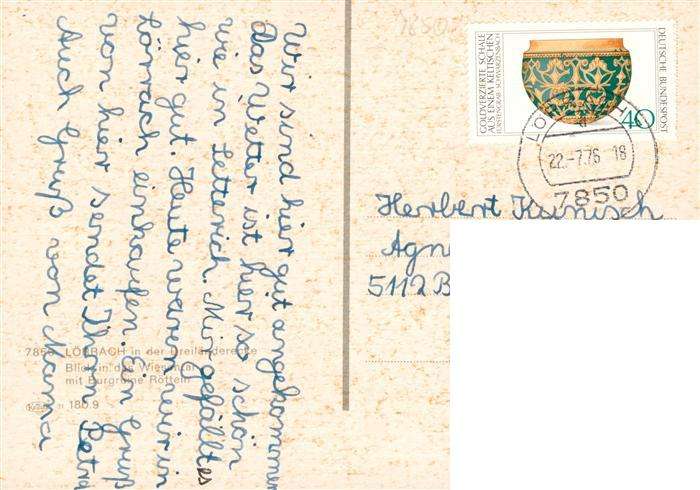 Wir sind hier gut angekommen
das Wetter ist hier so schön
wie in Setterich. Mir gefällt es
hier gut. Heute waren wir in
Lörrach einkaufen. Ein Gruß
von hier sendet Ihnen Petra
Auch Gruß von Mama
7850 LÖRRACH in der Dreiländerecke
Blick in das Wiesental
mit Burgruine Rötteln
180.9
GOLDVERZIERTE SCHALE
AUS EINEM KELTISCHEN
FÜRSTENGRAB SCHWARZENBACH
DEUTSCHE BUNDESPOST
40
22.-7.76 18
7850
Herbert Kunisch
Agn
5112 B